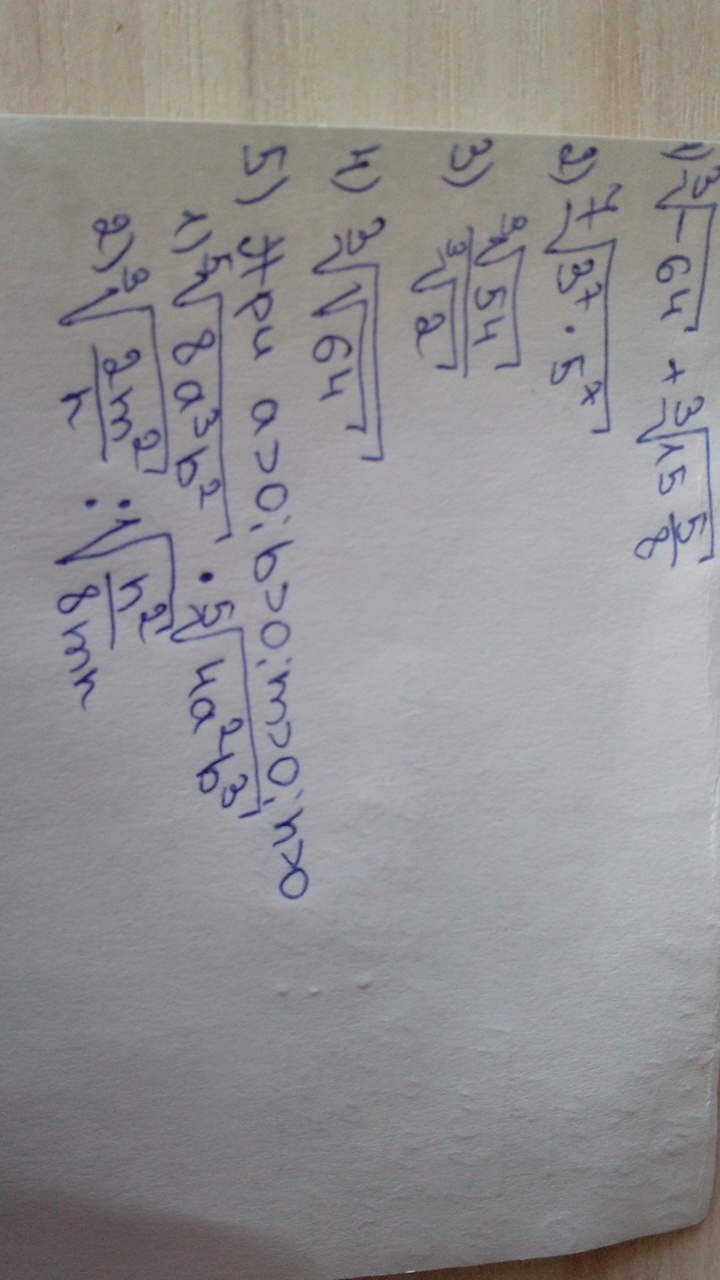 1) ∛-64 + ∛15 5/8
2) ⁷√3⁷ · 5⁷
3) ∛54 / ∛2
4) ∛√64
5) При a>0; b>0; m>0; n>0
1) ⁵√8a³b² · ⁵√4a²b³
2) ∛2m²/n : √n²/8mn